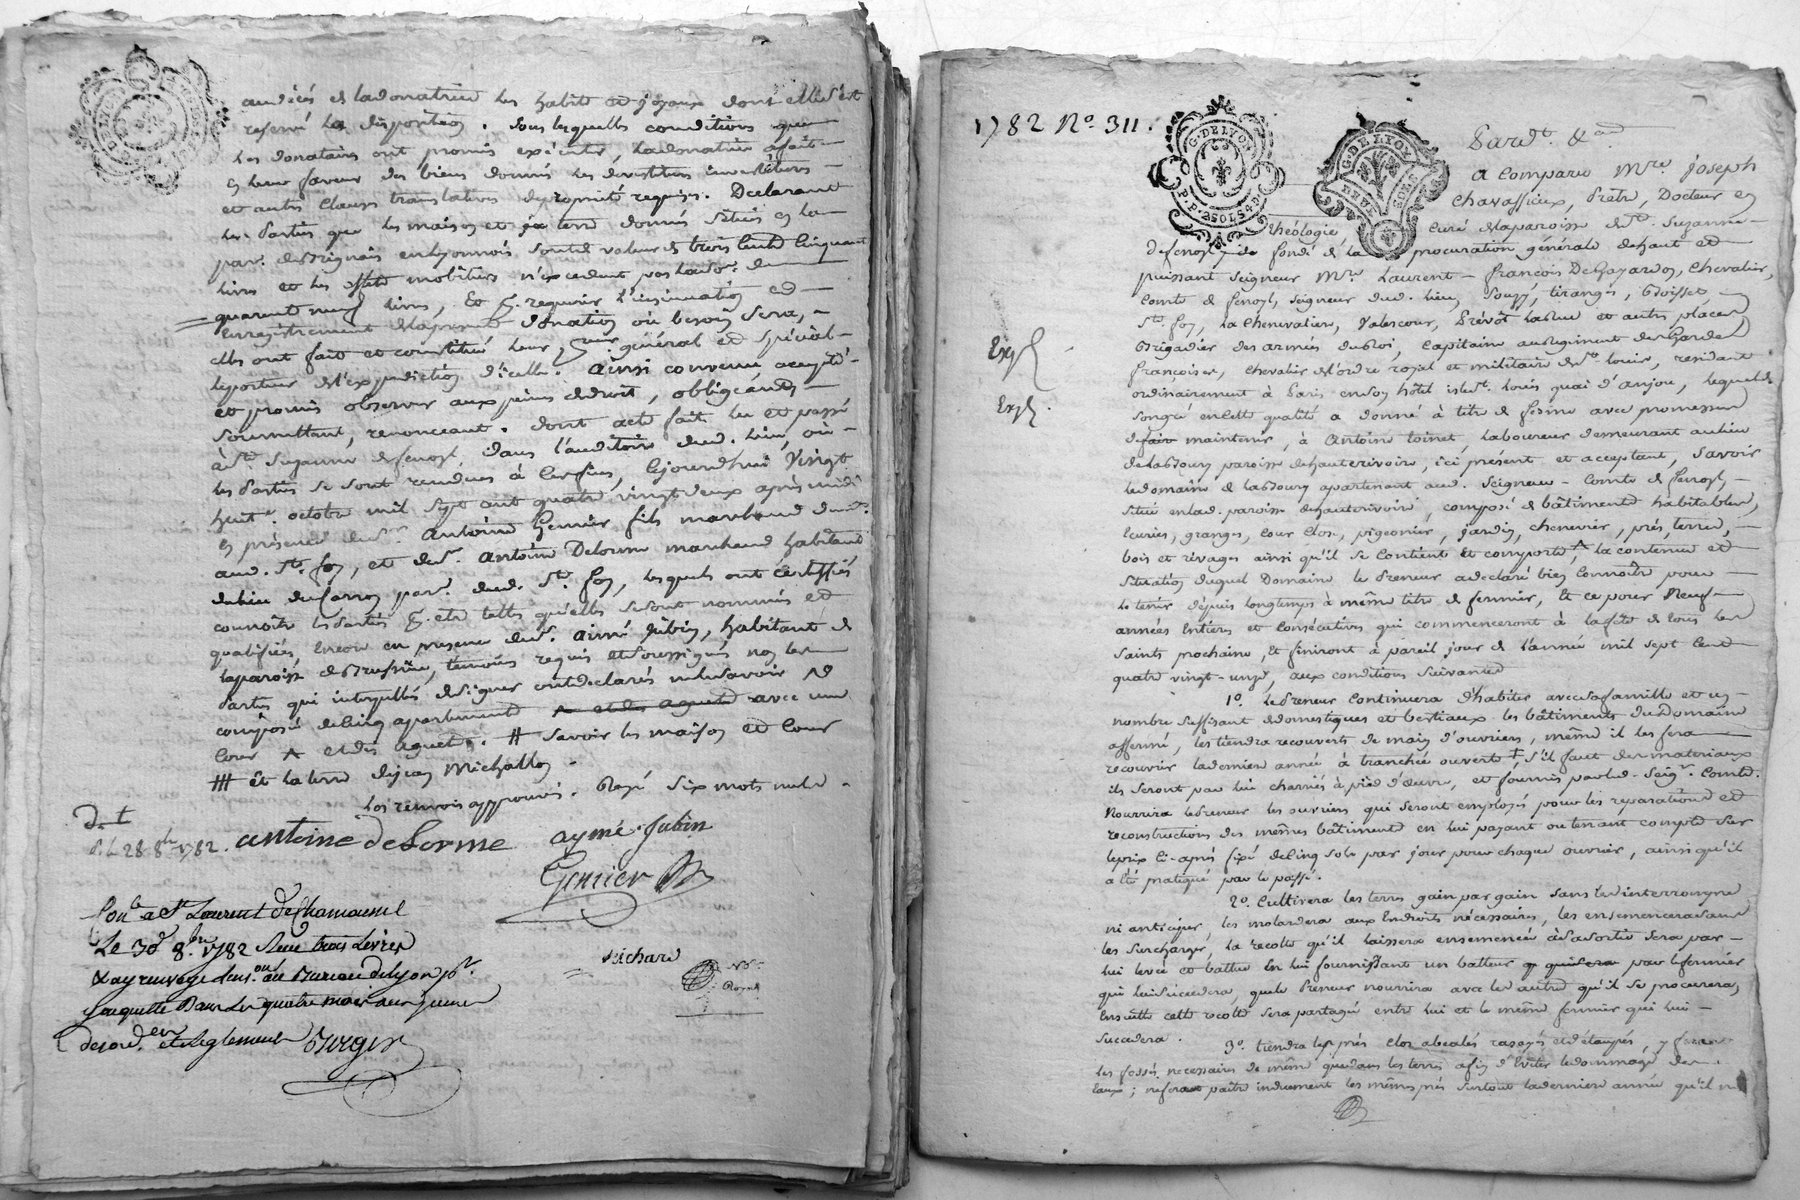 audités et la donatrice les habits et joyaux dont elle s'est
reservé la disposition. sous lesquelles conditions que
les donataires ont promis executer, la donatrice a fait
en leur faveur des biens donnés les devestitions investitions
et autres clauses translatives de proprieté requises. Declarant
les parties que les maison et terre donnés situés en la
par. de Brignais en Lyonnois sont de valeur de trois cents cinquante
livres et les effets mobiliers n'excedent pas la so. de
quarante neuf livres, Et pr. requerir l'insinuation et
enregistrement de la présente donation où besoin sera,
elles ont fait et constitué leur procureur général et spécial
le porteur de l'expedition d'icelle. Ainsi convenu, accepté
et promis observer aux peines de droit, obligeants
soumettant, renonceant. dont acte fait lu et passé
à Ste Suzanne de fenoyl, dans l'auditoire dud. lieu, où
les parties se sont rendues à ces fins, le jourd'hui vingt
huit. octobre mil sept cent quatre vingt deux après midi
en présence de sr. Antoine Genier fils marchand de
aud. Ste foy, et de sr. Antoine Delorme marchand habitant
du lieu du par. dud. Ste foy, lesquels ont certiffiés
connoitre les parties pr. etre telles qu'elles se sont nommés et
qualifiées Encore en presence de sr. aimé Jubin, habitant de
la paroisse de Brussieu, temoins requis et soussignés non les
parties qui interpellés de signer ont declarés ne le savoir
composé de cinq apartements avec une
cour ^ et des aguets. # savoir les maison et cour
### et la terre dejean Michallon.
Les renvois approuvés. Rayé six mots nuls.
d. t
d. le 28 8bre 1782. antoine delorme aymé. Jubin
Genier
Con.le a St Laurent de Chamousset
Le 30 8bre 1782 Reçu trois Livres
& ay renvoyé l'ins.on au Bureau de Lyon pr.
Laquelle Dans les quatre mois aux peines
de l'ord. et Reglement Berger
Richard
Nre.
Royal
1782 No. 311.
G. DE LYON
P.P. 2 SOLS 4 D.
G. DE LYON
Pardt. &a
a comparu Mre. Joseph
Chavassieux, Prêtre, Docteur en
théologie curé de la paroisse de Ste. Suzanne
de fenoyl, fondé de la procuration générale de haut et
puissant seigneur Mre. Laurent-françois De Gayardon, chevalier,
Comte de fenoyl, seigneur dud. lieu, Souzy, tiranges, Boisset
Ste. foy, la chenevatiere, Valescour, Prévôt la rue et autres places
Brigadier des armées du Roi, capitaine au regiment des Gardes
françoises, chevalier de l'ordre royal et militaire de St. Louis, residant
ordinairement à Paris en son hôtel isle St. Louis quai d'anjou, lequel dt
en cette qualité a donné à titre de ferme avec promesse
de faire maintenir, à Antoine toinet, laboureur demeurant au lieu
de labboury paroisse de hauterivoire, ici présent et acceptant, savoir
le domaine de labboury apartenant aud. seigneur Comte de fenoyl,
situé en lad. paroisse de hauterivoire, composé de bâtiments habitables,
ecuries, granges, cour close, pigeonier, jardin, chenevier, prés, terres,
bois et rivages ainsi qu'il se contient et comporte, la contenue et
situation duquel Domaine le Preneur a declaré bien connoître pour
le tenir depuis longtemps à même titre de fermier, Et ce pour Neuf
années Entieres et consécutives qui commenceront à la fête de tous les
saints prochaine, Et finiront à pareil jour de l'année mil sept cent
quatre vingt-onze, aux conditions suivantes
Expé
Expé.
1o. le Preneur continuera d'habiter avec sa famille et un
nombre suffisant de domestiques et bestiaux les bâtiments du Domaine
affermé, les tiendra recouverts de main d'ouvriers, même il les fera
recouvrir la derniere année à tranchée ouverte ‡ s'il faut des materiaux
ils seront par lui charriés à pied d'œuvre, et fournis par led. Seigr. Comte.
Nourrira le Preneur les ouvriers qui seront employés pour les reparations et
reconstructions des mêmes bâtiments en lui payant ou tenant compte sur
le prix ci-après fixé de cinq sols par jour pour chaque ouvrier, ainsi qu'il
a été pratiqué par le passé.
2o. Cultivera les terres gain par gain sans les interrompre
ni anticiper, les molardera aux Endroits nécessaires, les ensemencera sans
les surcharger, la recolte qu'il laissera ensemencée à sa sortie sera par
lui levée et battue En lui fournissant un batteur par le fermier
qui lui succedera, que le Preneur nourrira avec les autres qu'il se procurera,
Ensuite cette recolte sera partagée entre lui et le même fermier qui lui
succedera.
3o. tiendra les prés clos abealés rasés et détaupés, y fera
les fossés necessaires de même que dans les terres afin d'Eviter le dommage des
Eaux; ne fera paître indument les mêmes prés surtout la derniere année qu'il n